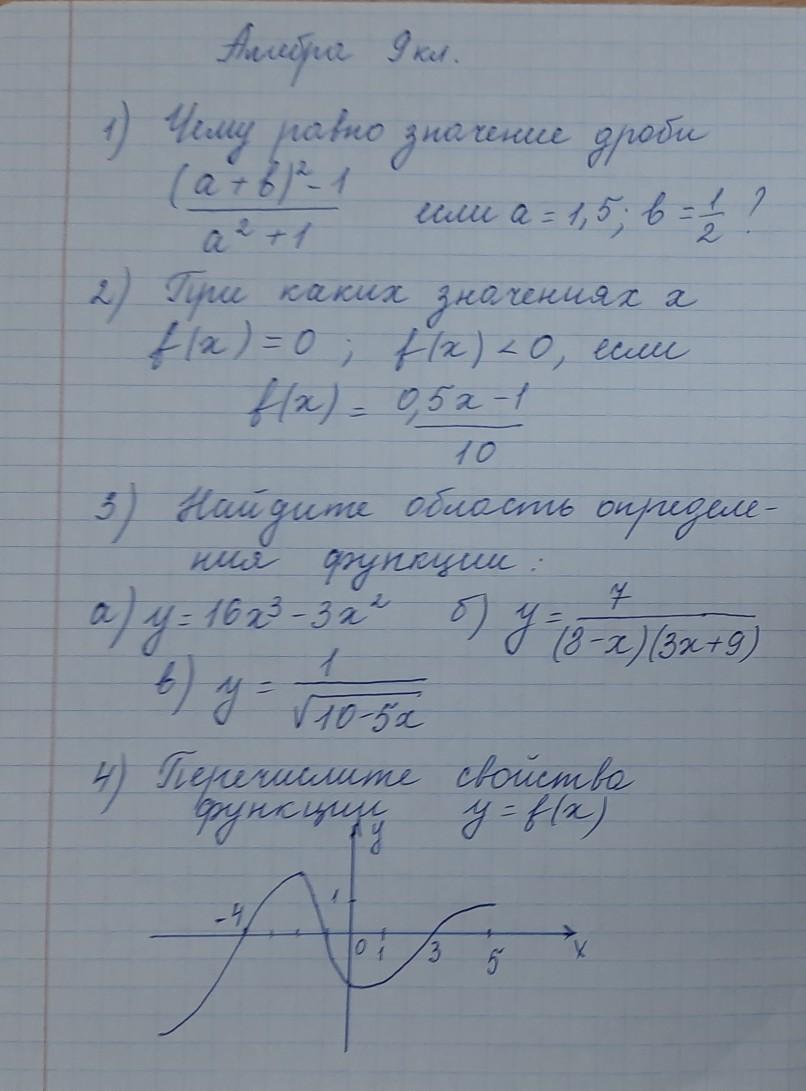 Алгебра 9 кл.
1) Чему равно значение дроби
((a + b)² - 1) / (a² + 1) если a = 1,5; b = 1/2 ?
2) При каких значениях x
f(x) = 0 ; f(x) < 0, если
f(x) = (0,5x - 1) / 10
3) Найдите область определе-
ния функции:
а) y = 16x³ - 3x² б) y = 7 / ((8-x)(3x+9))
в) y = 1 / √(10-5x)
4) Перечислите свойства
функции y = f(x)
y
-4 1
0 1 3 5 x